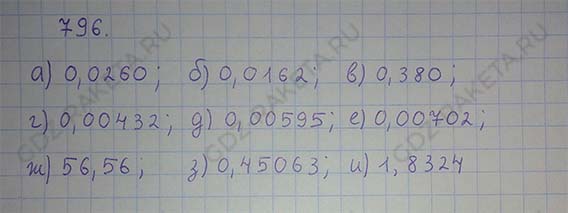 796.
а) 0,0260; б) 0,0162; в) 0,380;
г) 0,00432; д) 0,00595; е) 0,00702;
ж) 56,56; з) 0,45063; и) 1,8324
GDZ-RAKETA.RU
GDZ-RAKETA.RU
GDZ-RAKETA.RU